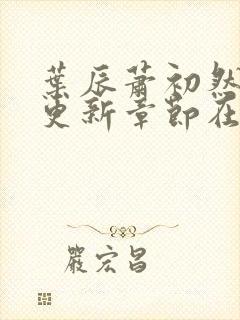 葉辰蕭初然
更新章節在
嚴宏昌